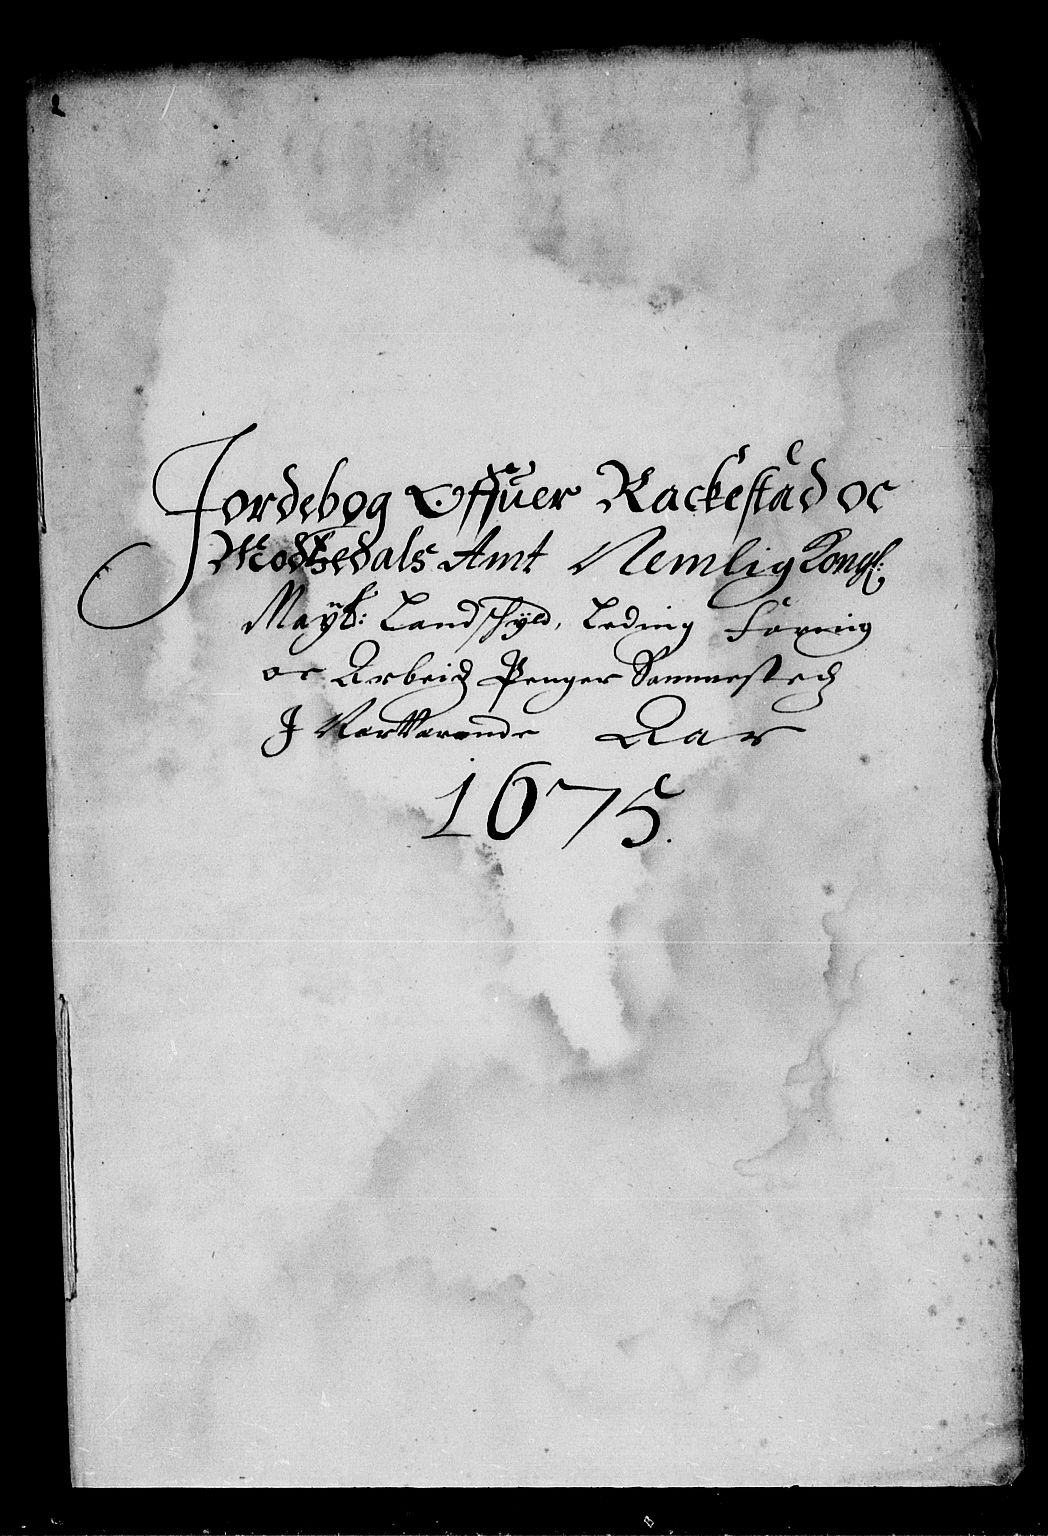 Jordebog Offuer Rackestad oc
Mosßedals Amt Nemlig Kongl:
Maÿt: Landschÿld, Leding Föring
oc Arbeidz Penger Sammestedz
J Nerverende Aar
1675.